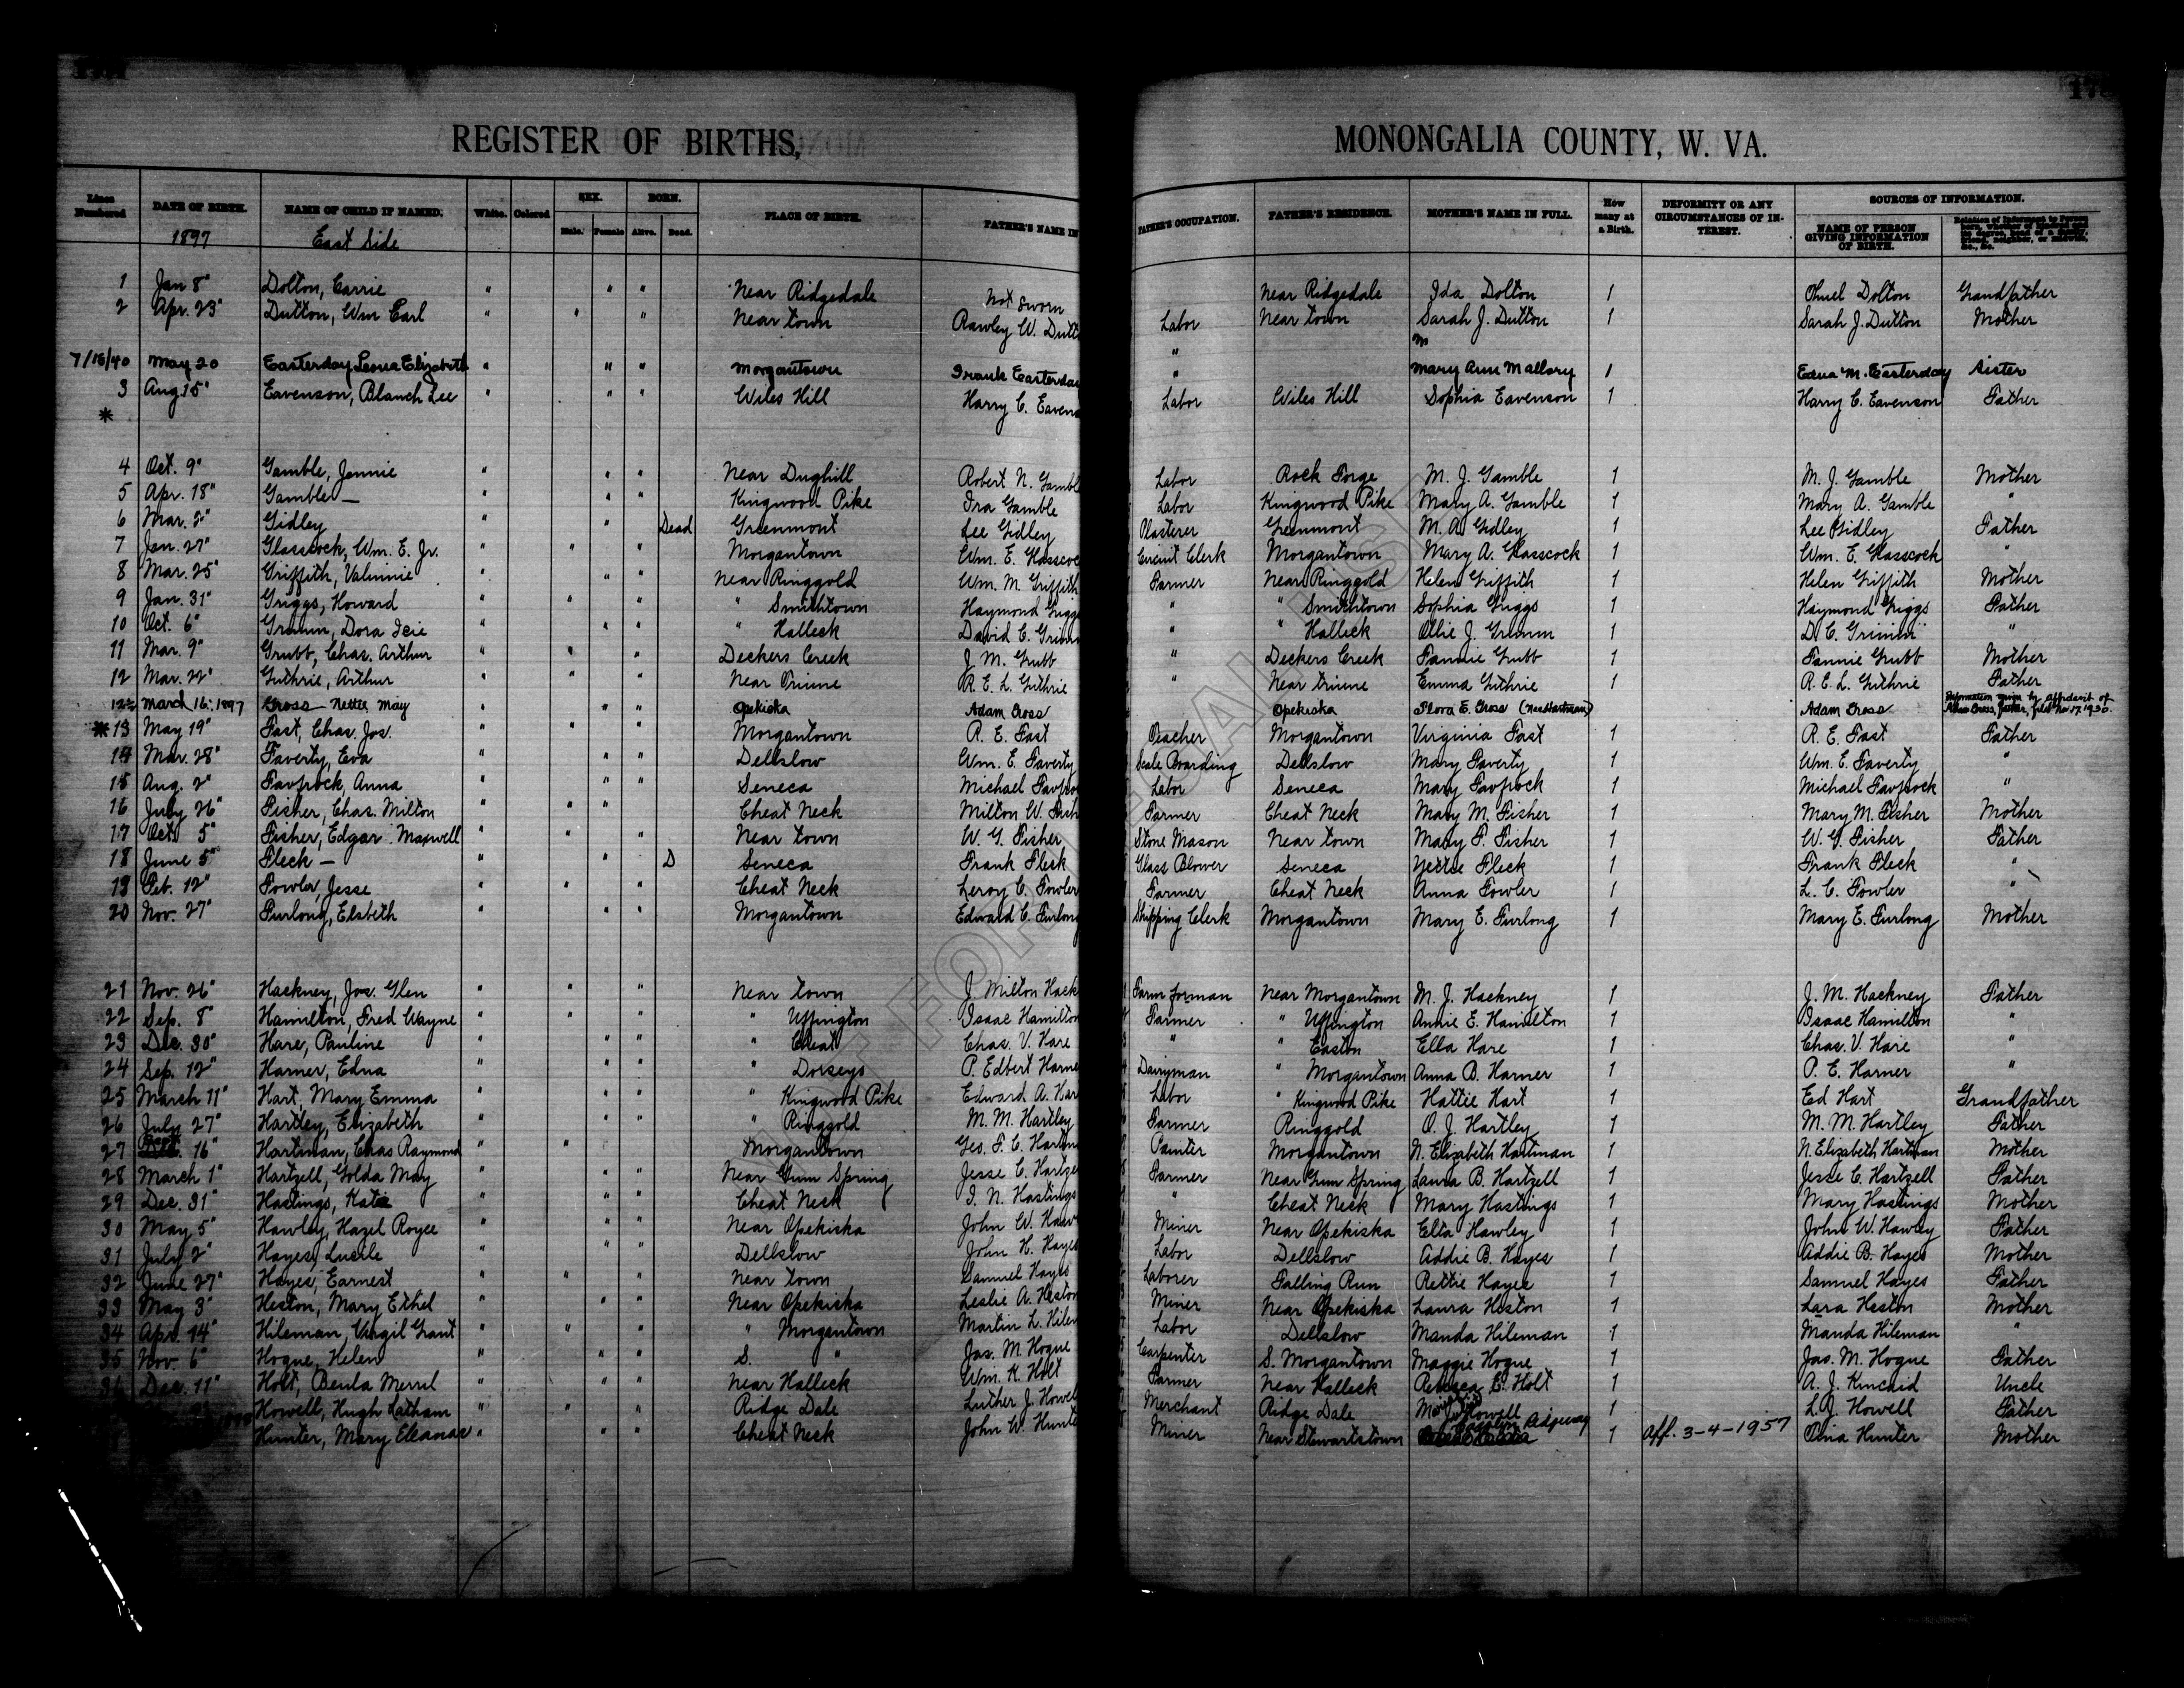 REGISTER OF BIRTHS, MONONGALIA COUNTY, W. VA.
Lines Numbered DATE OF BIRTH. NAME OF CHILD IF NAMED. White. Colored SEX. Male. Female BORN. Alive. Dead. PLACE OF BIRTH. FATHER'S NAME IN FATHER'S OCCUPATION. FATHER'S RESIDENCE. MOTHER'S NAME IN FULL. How many at a Birth. DEFORMITY OR ANY CIRCUMSTANCES OF INTEREST. SOURCES OF INFORMATION. NAME OF PERSON GIVING INFORMATION OF BIRTH.
1897 East Side
1 Jan 8" Dolton, Carrie " " " Near Ridgedale Not Sworn Near Ridgedale Ida Dolton 1 Dolton Grandfather
2 Apr. 23" Dutton, Wm Earl " " " Near town Rawley W. Dutt Labor Near town Sarah J. Dutton 1 Sarah J. Dutton Mother
7/15/40 May 20 Easterday Leona Elizabeth " " " Morgantown Frank Easterday " Mary Ann Mallory 1 Edna M. Easterday Sister
3 Aug 15" Eavenson, Blanch Lee " " " Wiles Hill Harry C. Eavens Labor Wiles Hill Sophia Eavenson 1 Harry C. Eavenson Father
*
4 Oct. 9" Gamble, Jennie " " " Near Dughill Robert N. Gambl Labor Rock Forge M. J. Gamble 1 M. J. Gamble Mother
5 Apr. 18" Gamble — " " " Kingwood Pike Ira Gamble Labor Kingwood Pike Mary A. Gamble 1 Mary A. Gamble "
6 Mar. 2" Gidley " " Dead Greenmont Lee Gidley Plasterer Greenmont M. A. Gidley 1 Lee Gidley Father
7 Jan. 27" Glasscock, Wm. E. Jr. " " " Morgantown Wm. E. Glasscoc Circuit Clerk Morgantown Mary A. Glasscock 1 Wm. E. Glasscock "
8 Mar. 25" Griffith, Valninie " " " Near Ringgold Wm. M. Griffith Farmer Near Ringgold Helen Griffith 1 Helen Griffith Mother
9 Jan. 31" Griggs, Howard " " " " Smithtown Haymond Griggs " " Smithtown Sophia Griggs 1 Haymond Griggs Father
10 Oct. 6" Grimm, Dora Icie " " " " Halleck David C. Grimm " " Halleck Ollie J. Grimm 1 D. C. Grimm "
11 Mar. 9" Grubb, Chas. Arthur " " " Deckers Creek J. M. Grubb " Deckers Creek Fannie Grubb 1 Fannie Grubb Mother
12 Mar. 22" Guthrie, Arthur " " " Near Triune R. E. L. Guthrie " Near Triune Emma Guthrie 1 R. E. L. Guthrie Father
12½ March 16, 1897 Gross — Nettie May " " " Opekiska Adam Gross Opekiska Flora E. Gross (Nee Hartman) Adam Gross Information given by affidavit of Adam Gross, Father, filed Nov 17, 1930.
*13 May 19" Fast, Chas. Jos. " " " Morgantown R. E. Fast Teacher Morgantown Virginia Fast 1 R. E. Fast Father
14 Mar. 28" Faverty, Eva " " " Dellslow Wm. E. Faverty Boarding Dellslow Mary Faverty 1 Wm. E. Faverty "
15 Aug. 2" Anna " " " Seneca Michael Labor Seneca Mary 1 Michael "
16 July 26" Fisher, Chas. Milton " " " Cheat Neck Milton W. Fish Farmer Cheat Neck Mary M. Fisher 1 Mary M. Fisher Mother
17 Oct. 5" Fisher, Edgar Maxwell " " " Near town W. G. Fisher Stone Mason Near town Mary F. Fisher 1 W. G. Fisher Father
18 June 5" Fleck — " " D Seneca Frank Fleck Glass Blower Seneca Nettie Fleck 1 Frank Fleck "
19 Feb. 12" Fowler, Jesse " " " Cheat Neck Leroy C. Fowler Farmer Cheat Neck Anna Fowler 1 L. C. Fowler "
20 Nov. 27" Furlong, Elsbeth " " " Morgantown Edward C. Furlong Shipping Clerk Morgantown Mary E. Furlong 1 Mary E. Furlong Mother
21 Nov. 26" Hackney, Jos. Glen " " " Near town J Milton Hack Farm forman Near Morgantown M. J. Hackney 1 J. M. Hackney Father
22 Sep. 8" Hamilton, Fred Wayne " " " " Uffington Isaac Hamilton Farmer " Uffington Annie E. Hamilton 1 Isaac Hamilton "
23 Dec. 30" Hare, Pauline " " " " Cheat Chas. V. Hare " " Easton Ella Hare 1 Chas. V. Hare "
24 Sep. 12" Harner, Edna " " " " Dorseys P. Edbert Harne Dairyman " Morgantown Anna B. Harner 1 P. E. Harner "
25 March 11" Hart, Mary Emma " " " " Kingwood Pike Edward A. Har Labor " Kingwood Pike Hattie Hart 1 Ed Hart Grandfather
26 July 27" Hartley, Elizabeth " " " " Ringgold M. M. Hartley Farmer Ringgold O. J. Hartley 1 M. M. Hartley Father
27 16" Hartman, Chas Raymond " " Morgantown Geo. F. C. Hartm Painter Morgantown N. Elizabeth Hartman 1 N. Elizabeth Hartman Mother
28 March 1" Hartzell, Golda May " " " Near Gum Spring Jesse C. Hartze Farmer Near Gum Spring Laura B. Hartzell 1 Jesse C. Hartzell Father
29 Dec. 31" Hastings, Katie " " " Cheat Neck I. N. Hastings " Cheat Neck Mary Hastings 1 Mary Hastings Mother
30 May 5" Hawley, Hazel Royce " " " Near Opekiska John W. Haw Miner Near Opekiska Elta Hawley 1 John W. Hawley Father
31 July 2" Hayes, Lucile " " " Dellslow John H. Hayes Labor Dellslow Addie B. Hayes 1 Addie B. Hayes Mother
32 June 27" Hayes, Earnest " " " Near town Samuel Hayes Laborer Falling Run Rettie Hayes 1 Samuel Hayes Father
33 May 3" Heston, Mary Ethel " " " Near Opekiska Leslie A. Heston Miner Near Opekiska Laura Heston 1 Lara Heston Mother
34 Apr. 14" Hileman, Virgil Grant " " " " Morgantown Martin L. Hilem Labor Dellslow Manda Hileman 1 Manda Hileman "
35 Nov. 6" Hogue, Helen " " " S. " Jas. M. Hogue Carpenter S. Morgantown Maggie Hogue 1 Jas. M. Hogue Father
36 Dec. 11" Holt, Beula Merrel " " " Near Halleck Wm. K. Holt Farmer Near Halleck Rebecca E. Holt 1 A. J. Kincaid Uncle
Howell, Hugh Latham " " " Ridge Dale Luther J. Howell Merchant Ridge Dale Howell 1 L. J. Howell Father
Hunter, Mary Eleanor " " " Cheat Neck John W. Hunte Miner Near Stewartstown Ridgeway 1 Aff. 3-4-1957 Hunter Mother